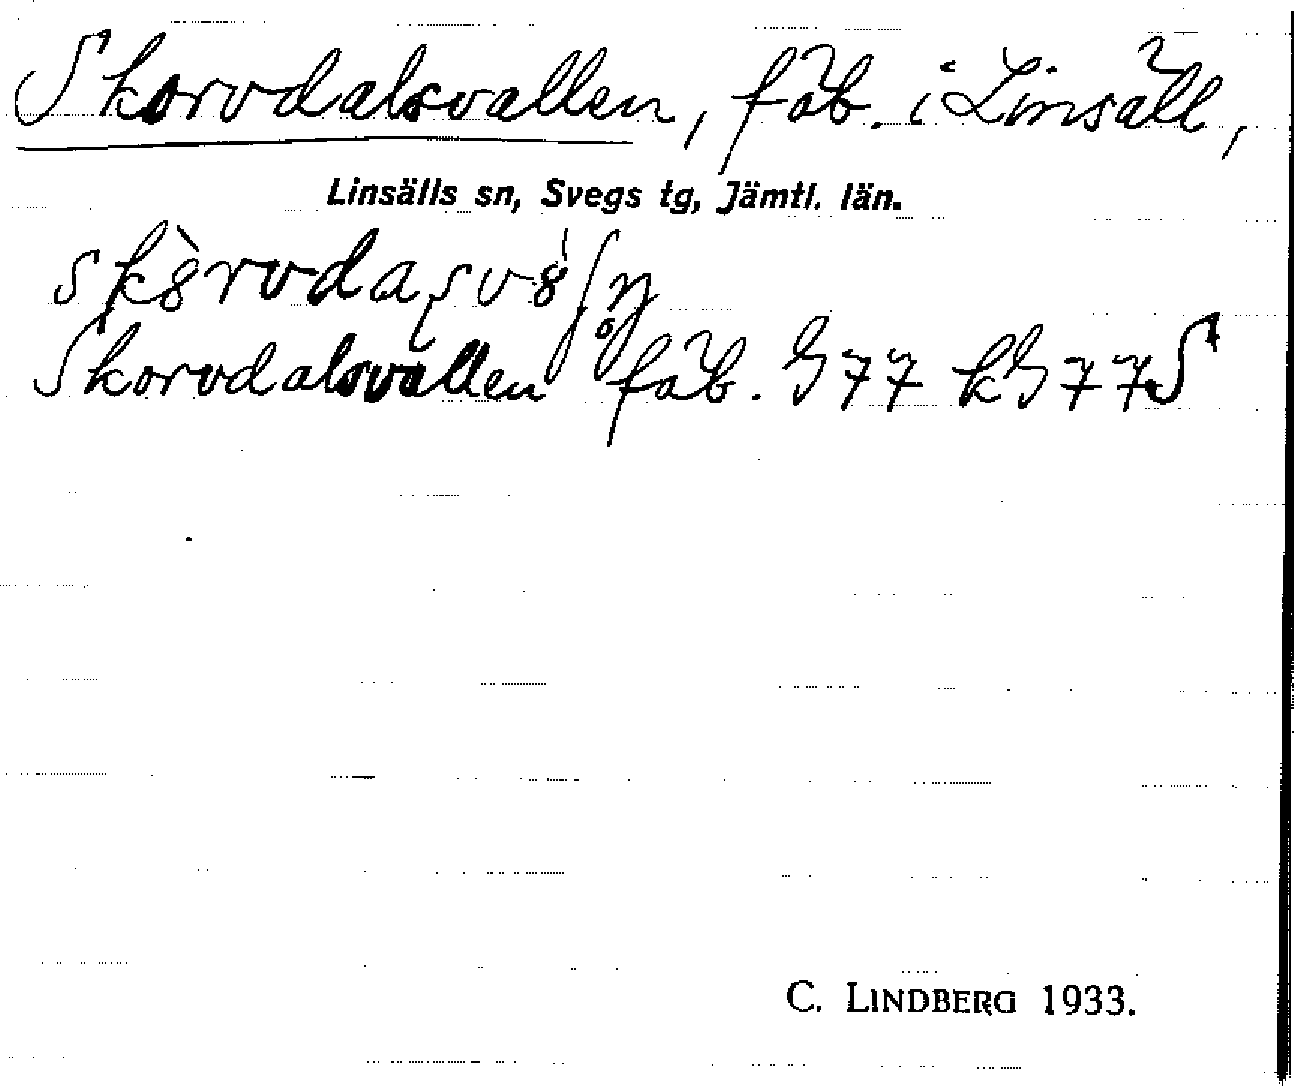 Skorvdalsvallen, fäb. i Linsäll,
Linsälls sn, Svegs tg, Jämtl. län.
Skorvdalsvallen fäb. G77 kG77S
C. LINDBERG 1933.